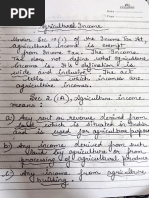 Agricultural Income
Under Sec 10(1) of the Income Tax Act
agricultural income is exempt
from Income Tax. Income
Tax does not define what agricultural
income is. It's definition is
wide and inclusive. The act
tells which incomes are
agriculture incomes.
Sec 2 (1A), agriculture income
means -
a) Any rent or revenue derived from
which is situated in India
and is used for agriculture purpose
b) Any income derived from such
land by agriculture or from
processing of agricultural produce
c) Any income from agriculture
building